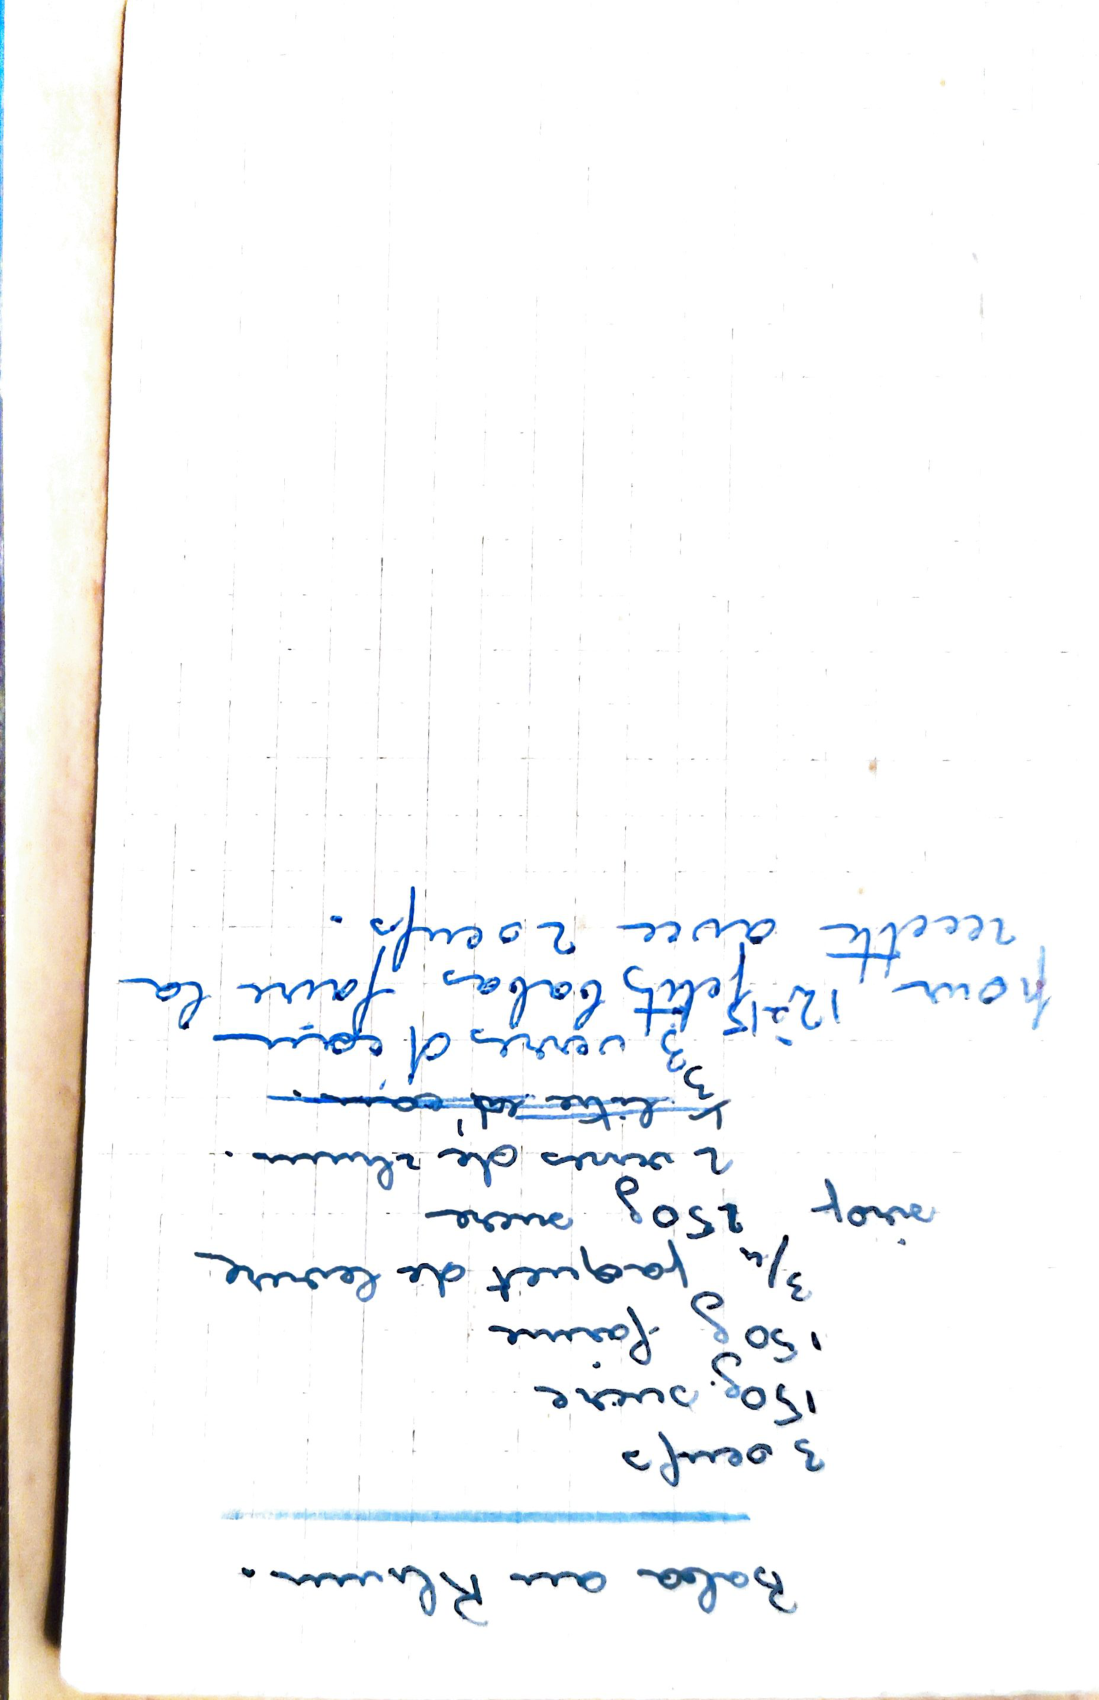 Baba au Rhum.
3 oeufs
150g. sucre
150g farine
3/4 paquet de levure
sirop 250g sucre
2 verres de rhum.
litre d'eau.
3 verres d'eau
pour 12 à 15 petits babas faire la
recette avec 2 oeufs.